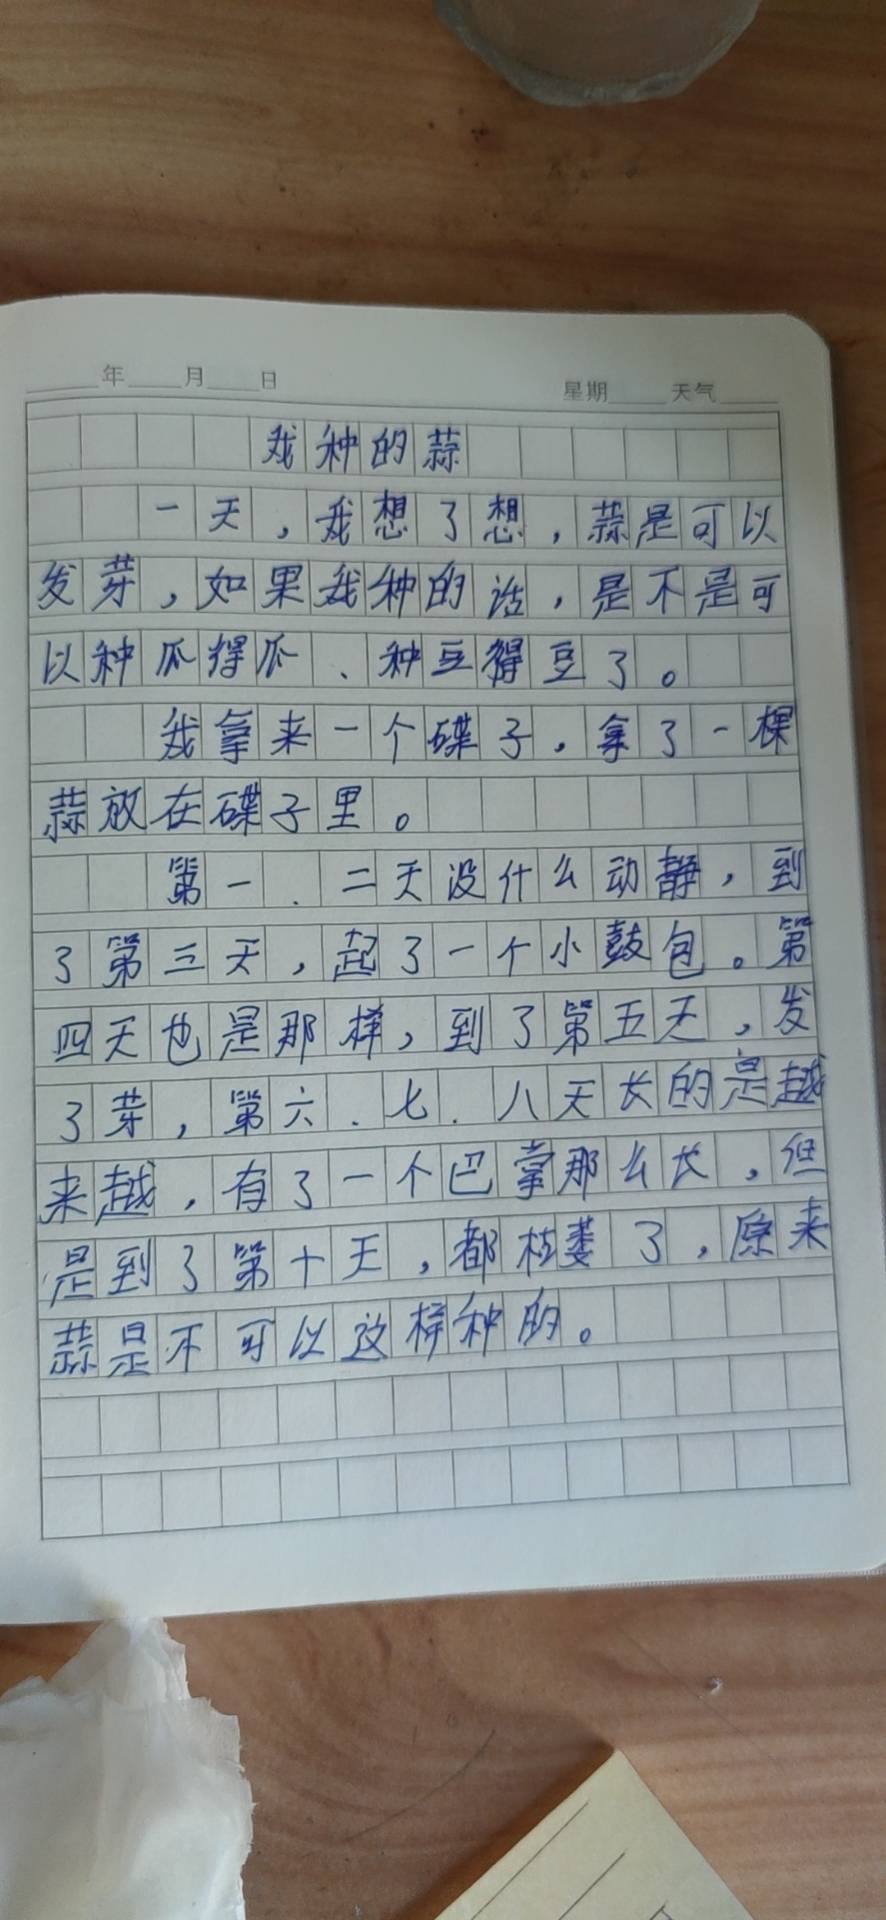 年 月 日 星期 天气
我种的蒜
一天，我想了想，蒜是可以
发芽，如果我种的话，是不是可
以种瓜得瓜、种豆得豆了。
我拿来一个碟子，拿了一棵
蒜放在碟子里。
第一、二天没什么动静，到
了第三天，起了一个小鼓包。第
四天也是那样，到了第五天，发
了芽，第六、七、八天长的是越
来越，有了一个巴掌那么长，但
是到了第十天，都枯萎了，原来
蒜是不可以这样种的。